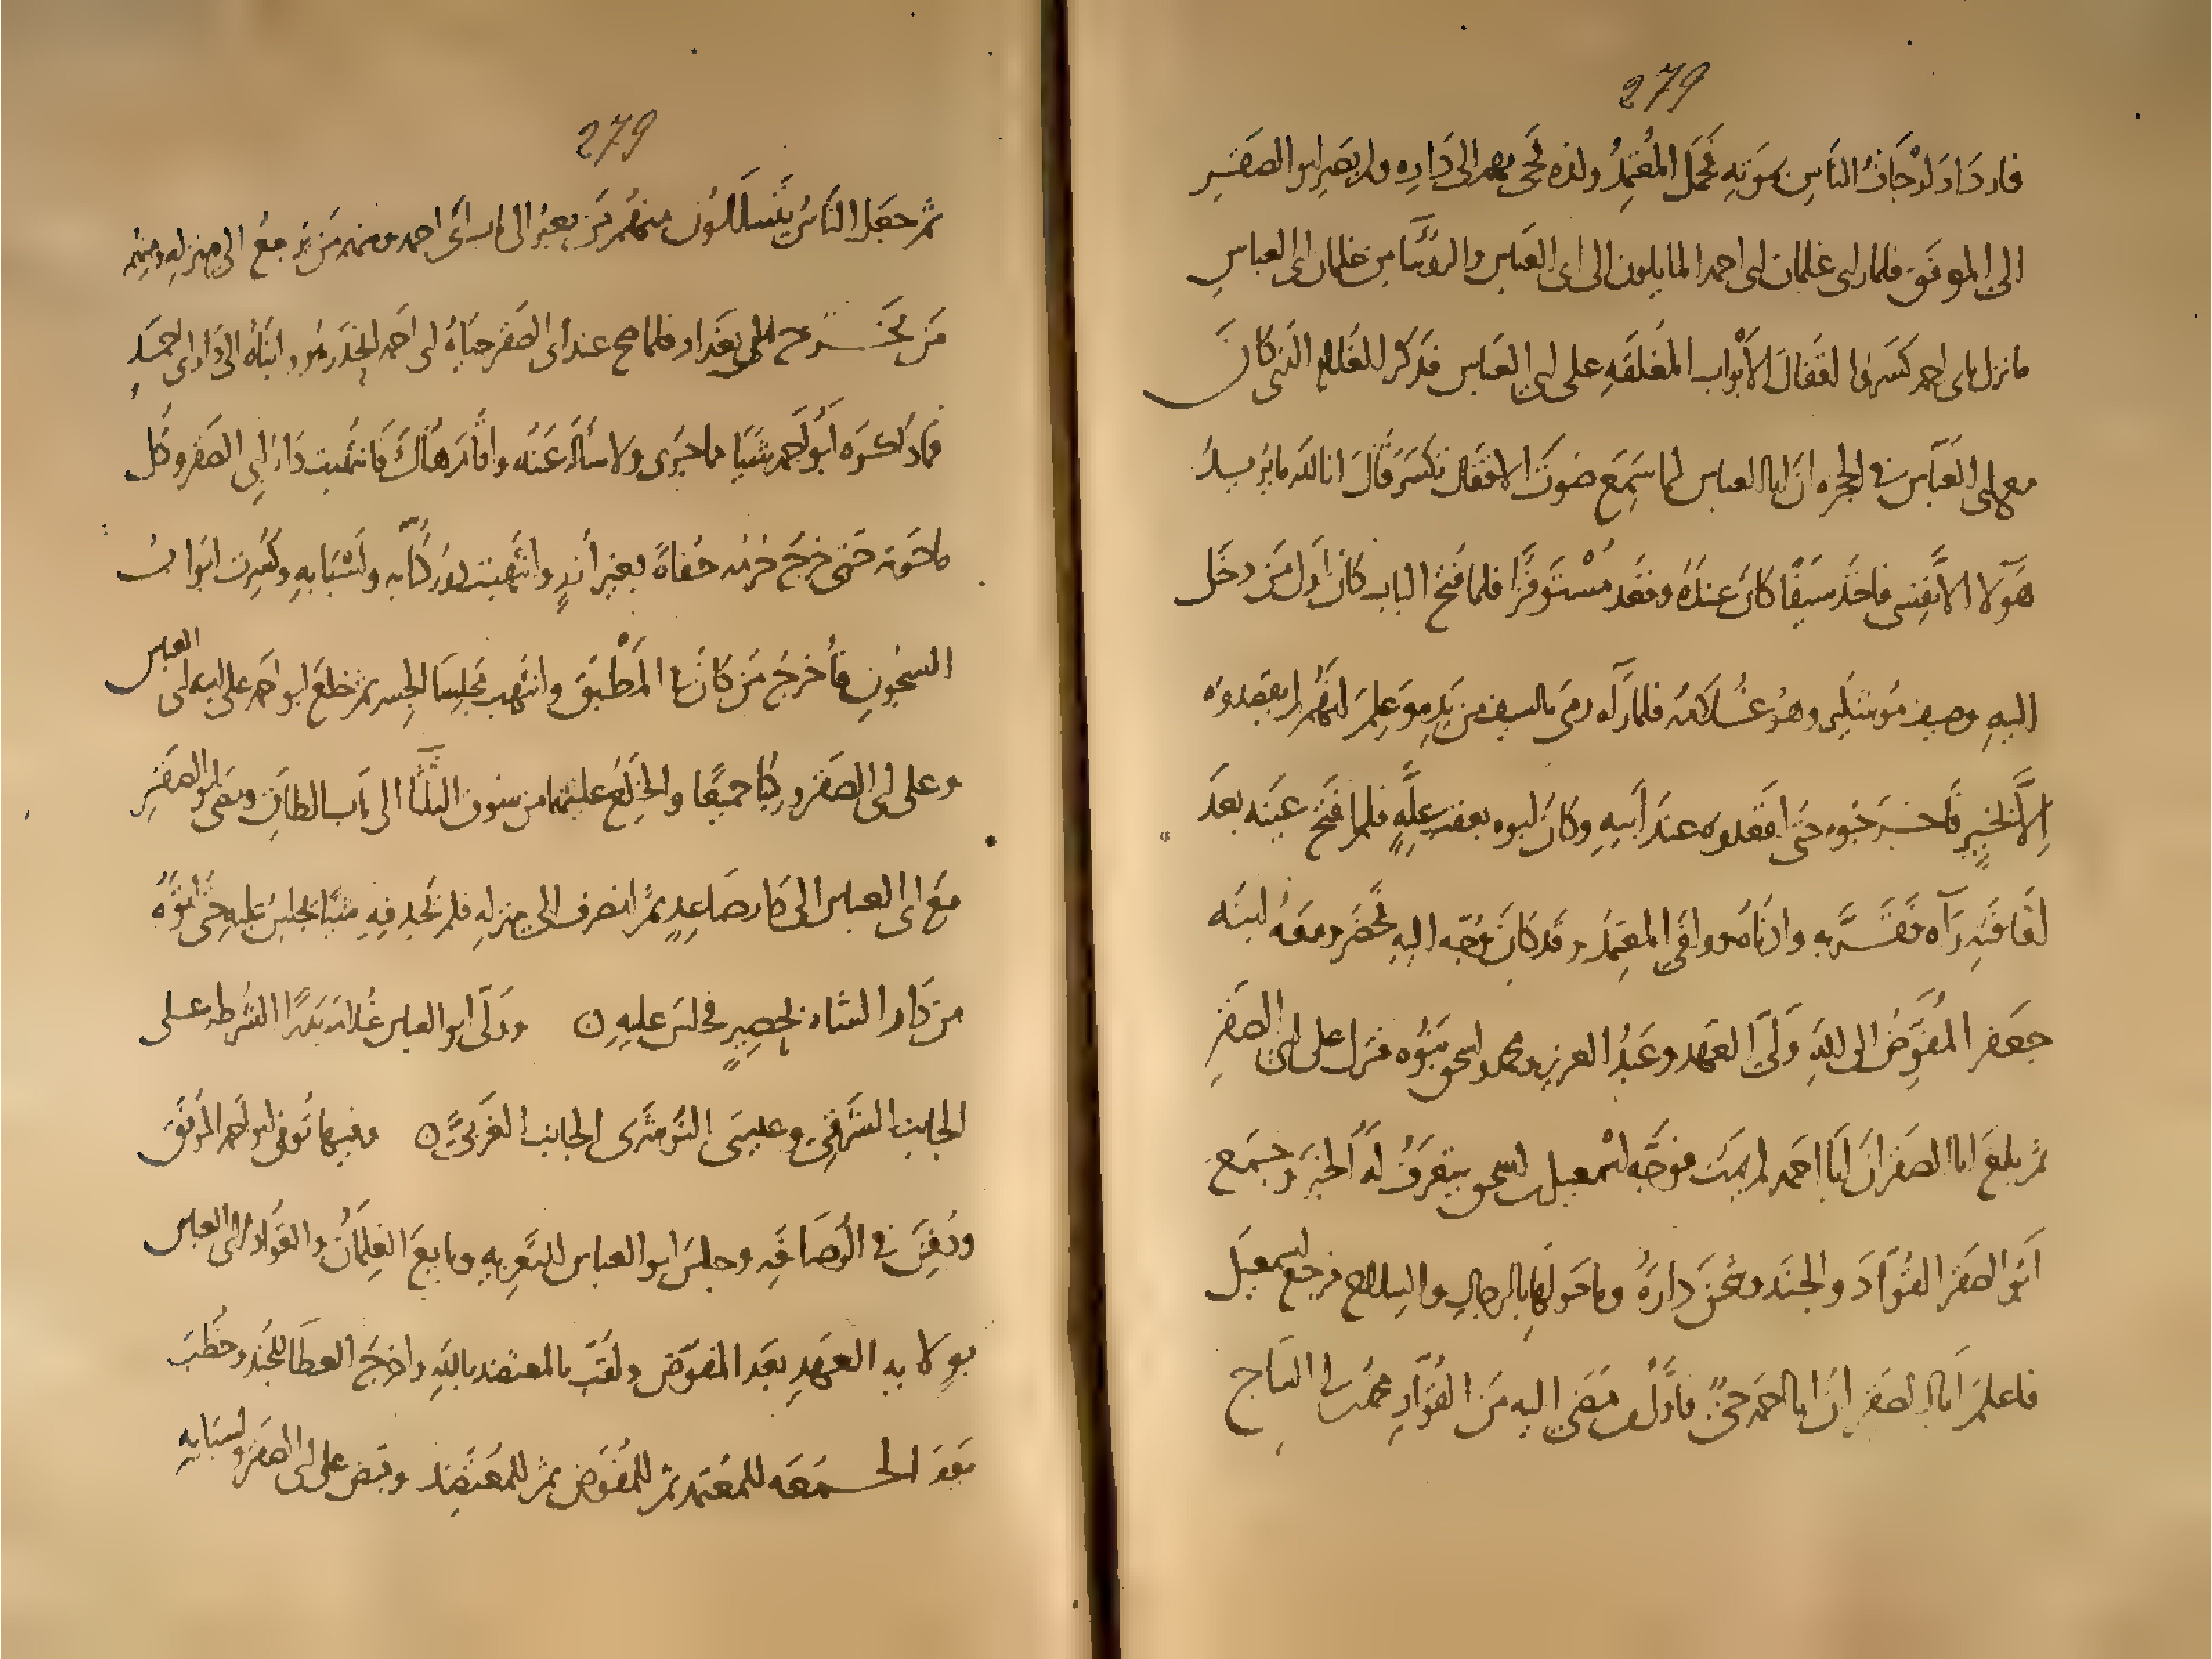 279
فازداد ارجاف الناس بموته فحمل المعتمد وولده فجيء بهم الى داره ولم يصر ابو الصقر
الى الموفق فلما راى غلمان ابى احمد المايلون الى ابى العباس والروسا من غلمان ابى العباس
ما نزل بابى احمد كسروا اقفال الابواب المغلقه على ابى العباس فذكر الغلام الذى كان
مع ابى العباس فى الحجره ان ابا العباس لما سمع صوت الاقفال تكسر قال انا لله ما يريد
هولا الا نفسى فاخذ سيفا كان عنده وقعد مستوفزا فلما فتح الباب كان اول من دخل
اليه وصيف موشكير وهو غلامه فلما رآه رمى بالسيف من يده وعلم انهم لم يقصدوه
الا لخير فاخرجوه حتى اقعدوه عند ابيه وكان ابوه بعقب عله فلما فتح عينه بعد
افاقته رآه فقربه وادناه ووافى المعتمد وقد كان وجه اليه فحضر ومعه ابنه
جعفر المفوض الى الله ولى العهد وعبد العزيز ومحمد واسحق بنوه فنزل على ابى الصقر
ثم بلغ ابا الصقر ان ابا احمد لم يمت فوجه اسمعيل بن اسحق يتعرف له الخبر وجمع
ابو الصقر القواد والجند وشحن داره وما حولها بالرجال والسلاح فرجع اسمعيل
فاعلم ابا الصقر ان ابا احمد حى فاول من مضى اليه من القواد محمد بن ابى الساج
279
ثم جعل الناس يتسللون منهم من يعبر الى باب ابى احمد ومنهم من يرجع الى منزله ومنهم
من يخرج من بغداد فلما صح عند ابى الصقر حياة ابى احمد انحدر هو وابناه الى دار ابى احمد
فما ذاكره ابو احمد شيا مما جرى ولا ساله عنه واقام هناك فانتهبت دار ابى الصقر وكل
ما حوته حتى خرج حرمه حفاة بغير ازر وانتهبت دور كتابه واسبابه وكسرت ابواب
السجون فاخرج من كان فى المطبق وانتهب مجلسا الجسر ثم خلع ابو احمد على ابنه ابى العباس
وعلى ابى الصقر وركبا جميعا والخلع عليهما من سوق الثلثا الى باب الطاق ومضى ابو الصقر
مع ابى العباس الى دار صاعد ثم انصرف الى منزله فلم يجد فيه شيا يجلس عليه حتى اتوه
من دار الشاه بحصير فجلس عليه ن وولى ابو العباس غلامه بدرا الشرطه على
الجانب الشرقى وعيسى النوشرى الجانب الغربى ن وفيها توفى ابو احمد الموفق
ودفن فى الرصافه وجلس ابو العباس للتعزيه وبايع الغلمان والقواد لابى العباس
بولايه العهد بعد المفوض ولقب بالمعتضد بالله واخرج العطا للجند وخطب
يوم الجمعه للمعتمد ثم للمفوض ثم للمعتضد وقبض على ابى الصقر واسبابه